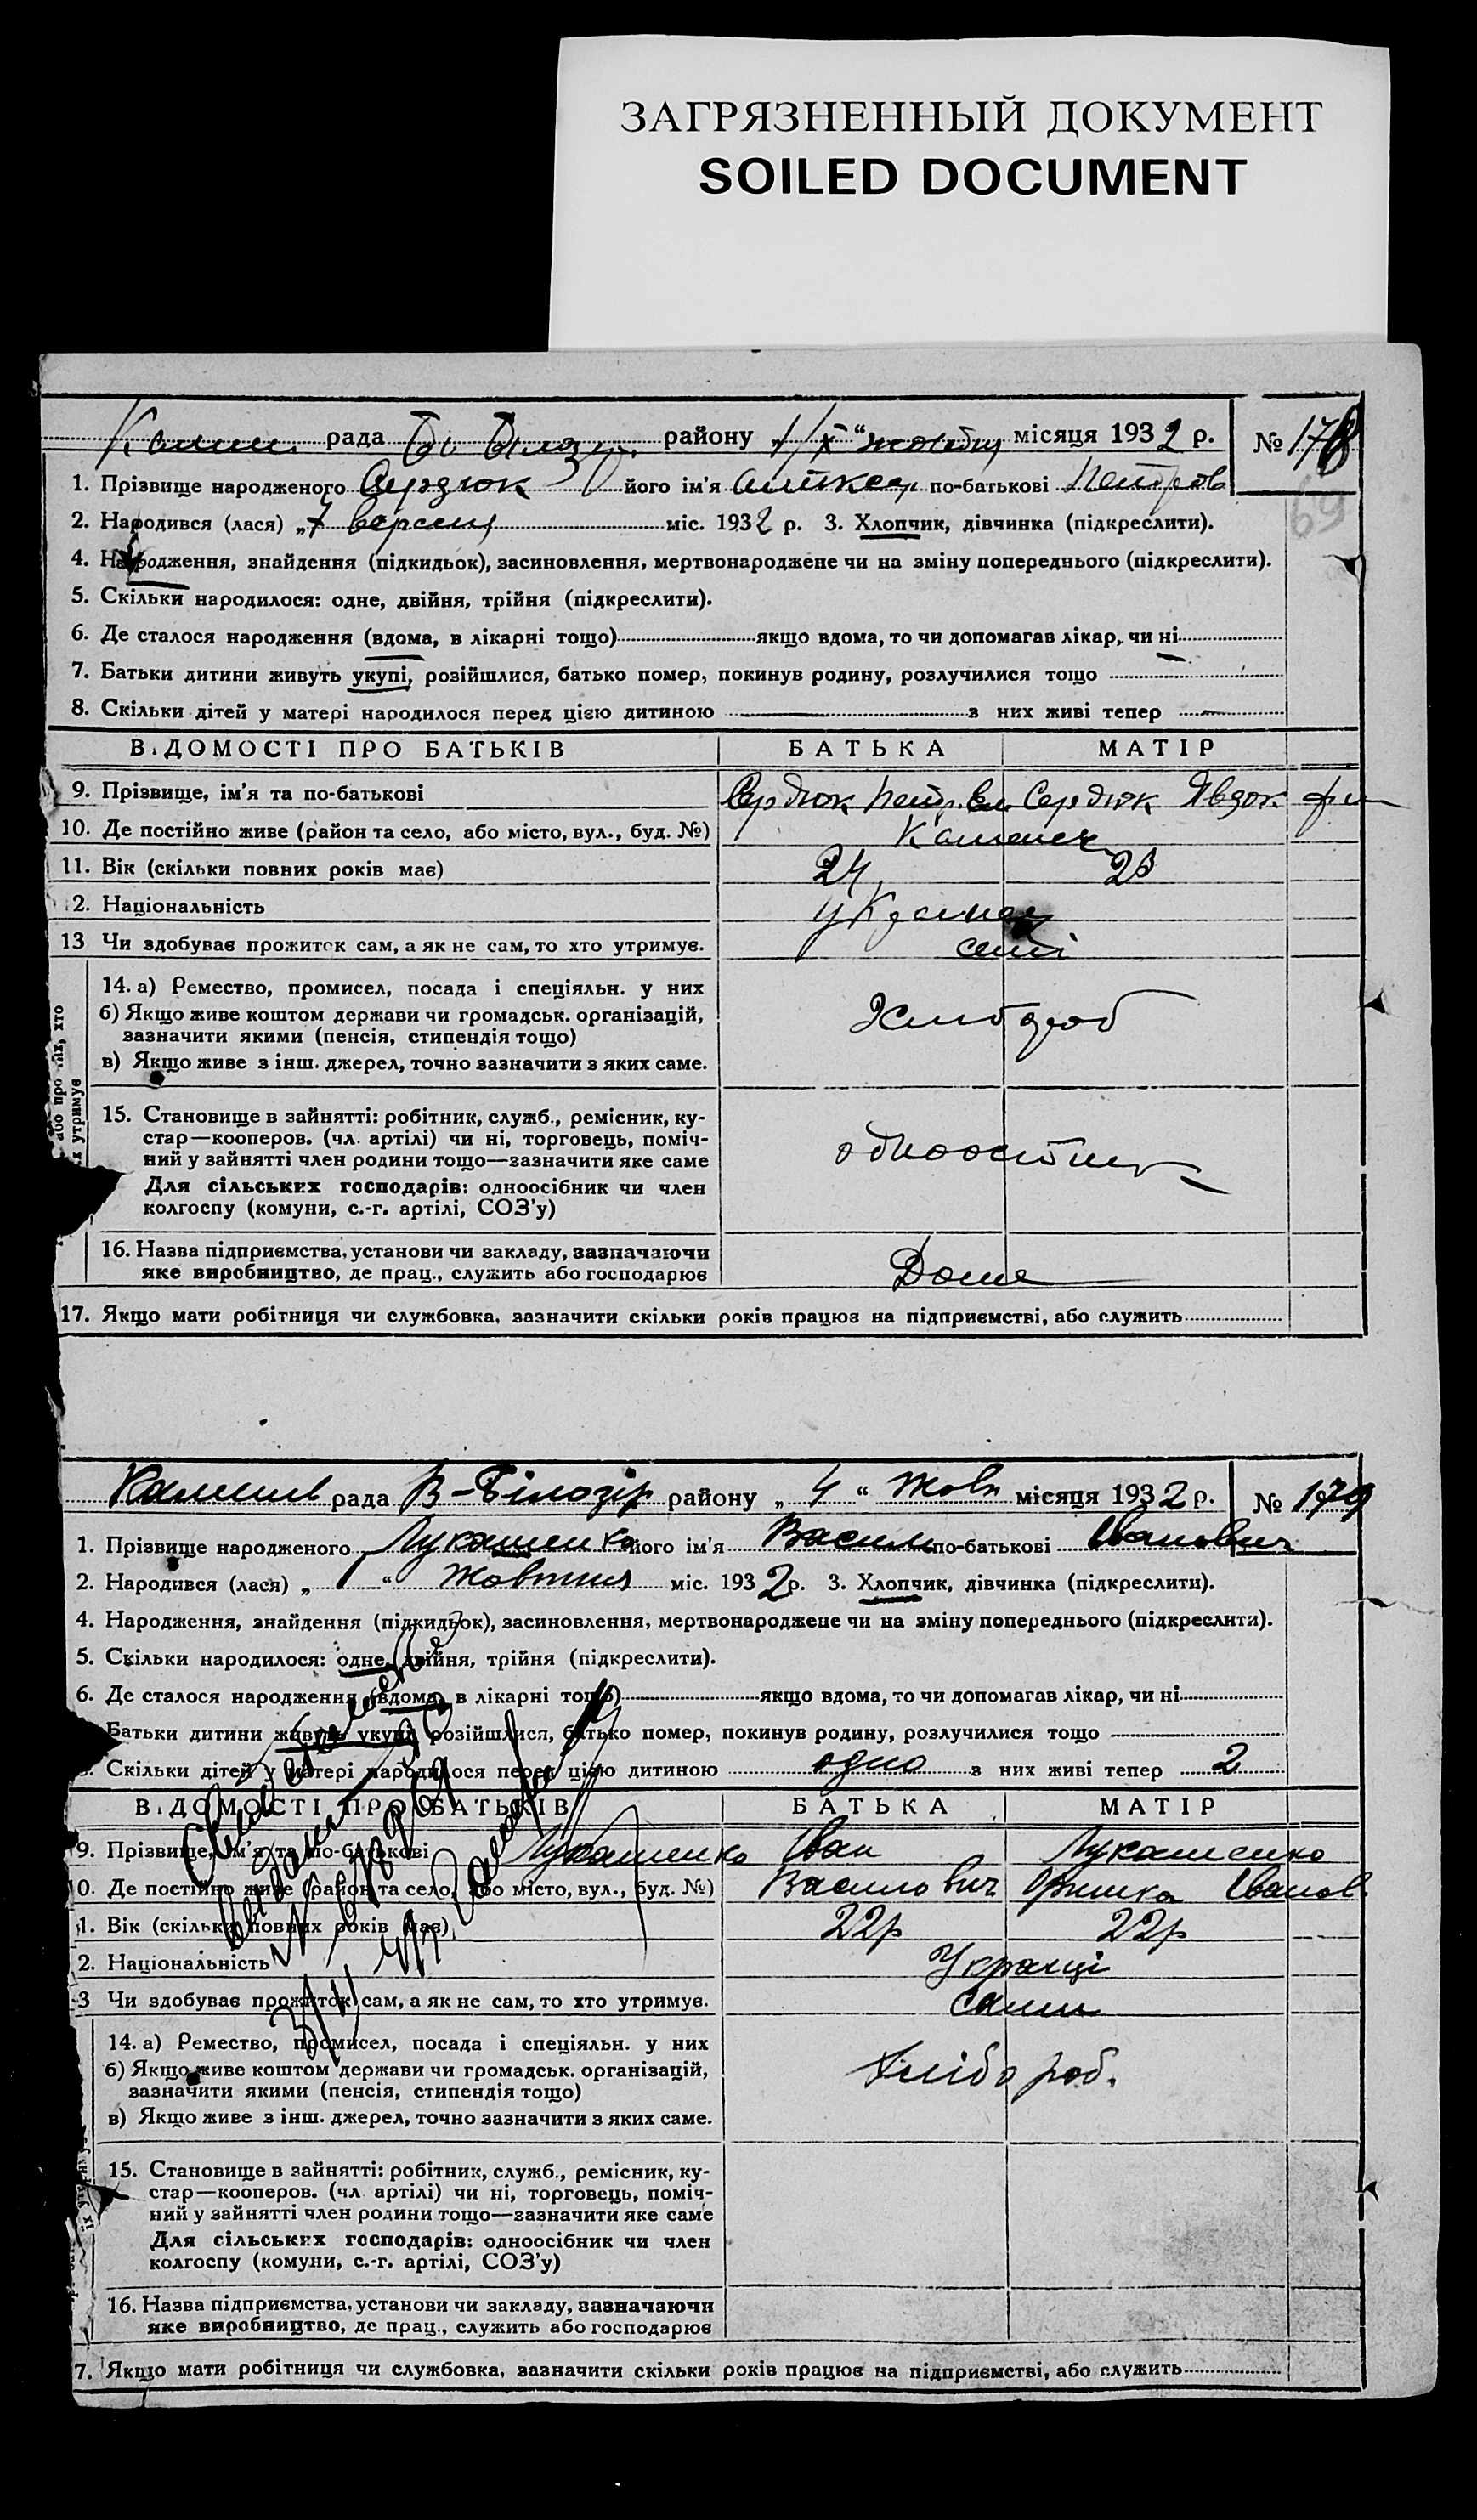 ЗАГРЯЗНЕННЫЙ ДОКУМЕНТ
SOILED DOCUMENT
рада району місяця 1932 р. № 178
69
1. Прізвище народженого Сердюк його ім'я по-батькові Петров
2. Народився (лася) „7 міс. 1932 р. 3. Хлопчик, дівчинка (підкреслити).
4. Народження, знайдення (підкидьок), засиновлення, мертвонароджене чи на зміну попереднього (підкреслити).
5. Скільки народилося: одне, двійня, трійня (підкреслити).
6. Де сталося народження (вдома, в лікарні тощо) якщо вдома, то чи допомагав лікар, чи ні
7. Батьки дитини живуть укупі, розійшлися, батько помер, покинув родину, розлучилися тощо
8. Скільки дітей у матері народилося перед цією дитиною — з них живі тепер —
ВІДОМОСТІ ПРО БАТЬКІВ БАТЬКА МАТІР
9. Прізвище, ім'я та по-батькові Сердюк Петр. Сердюк Явдок
10. Де постійно живе (район та село, або місто, вул., буд. №)
11. Вік (скільки повних років має) 24 23
2. Національність
13 Чи здобував прожиток сам, а як не сам, то хто утримує. самі
14. а) Ремество, промисел, посада і спеціяльн. у них
б) Якщо живе коштом держави чи громадськ. організацій,
зазначити якими (пенсія, стипендія тощо) Хлібороб
в) Якщо живе з інш. джерел, точно зазначити з яких саме.
або про тих, хто
їх утримує
15. Становище в зайнятті: робітник, служб., ремісник, ку-
стар—кооперов. (чл. артілі) чи ні, торговець, поміч-
ний у зайнятті член родини тощо—зазначити яке саме
Для сільських господарів: одноосібник чи член
колгоспу (комуни, с.-г. артілі, СОЗ'у)
16. Назва підприємства, установи чи закладу, зазначаючи
яке виробництво, де прац., служить або господарює Дома
17. Якщо мати робітниця чи службовка, зазначити скільки років працює на підприємстві, або служить
рада В-Білозір району „4“ Жовт місяця 1932 р. № 179
1. Прізвище народженого Лукашенко його ім'я Василь по-батькові Іванович
2. Народився (лася) „1“ Жовтня міс. 1932 р. 3. Хлопчик, дівчинка (підкреслити).
4. Народження, знайдення (підкидьок), засиновлення, мертвонароджене чи на зміну попереднього (підкреслити).
5. Скільки народилося: одне, двійня, трійня (підкреслити).
6. Де сталося народження (вдома, в лікарні тощо) якщо вдома, то чи допомагав лікар, чи ні
Батьки дитини живуть укупі, розійшлися, батько помер, покинув родину, розлучилися тощо
8. Скільки дітей у матері народилося перед цією дитиною одно з них живі тепер 2
ВІДОМОСТІ ПРО БАТЬКІВ БАТЬКА МАТІР
9. Прізвище, ім'я та по-батькові Лукашенко Іван Лукашенко
0. Де постійно живе (район та село, або місто, вул., буд. №) Василович Іванов
1. Вік (скільки повних років має) 22р 22р
2. Національність Українці
3 Чи здобував прожиток сам, а як не сам, то хто утримує. сами
14. а) Ремество, промисел, посада і спеціяльн. у них
б) Якщо живе коштом держави чи громадськ. організацій,
зазначити якими (пенсія, стипендія тощо) Хлібороб.
в) Якщо живе з інш. джерел, точно зазначити з яких саме.
15. Становище в зайнятті: робітник, служб., ремісник, ку-
стар—кооперов. (чл. артілі) чи ні, торговець, поміч-
ний у зайнятті член родини тощо—зазначити яке саме
Для сільських господарів: одноосібник чи член
колгоспу (комуни, с.-г. артілі, СОЗ'у)
16. Назва підприємства, установи чи закладу, зазначаючи
яке виробництво, де прац., служить або господарює
7. Якщо мати робітниця чи службовка, зазначити скільки років працює на підприємстві, або служить